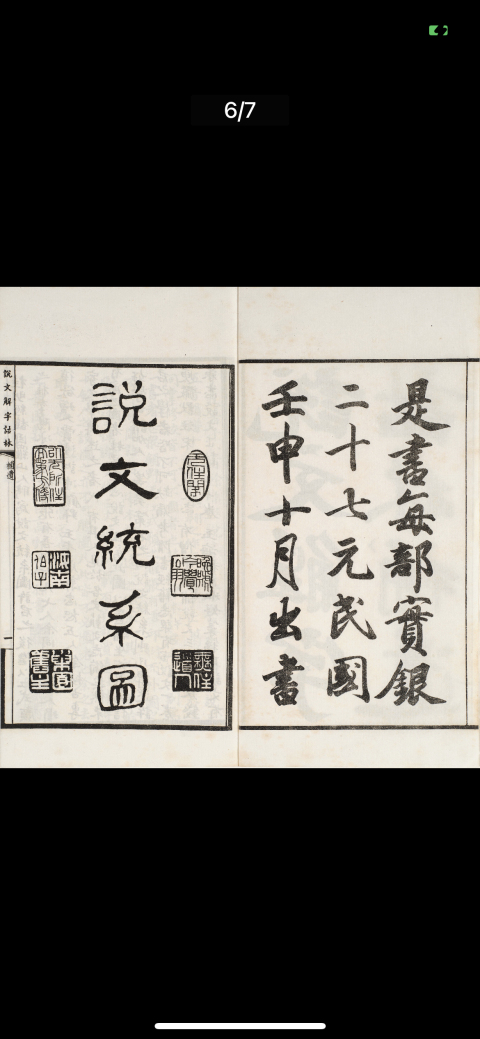 6/7
是書每部實銀
二十七元民國
壬申十月出書
說文統系圖
說文解字詁林
補遺